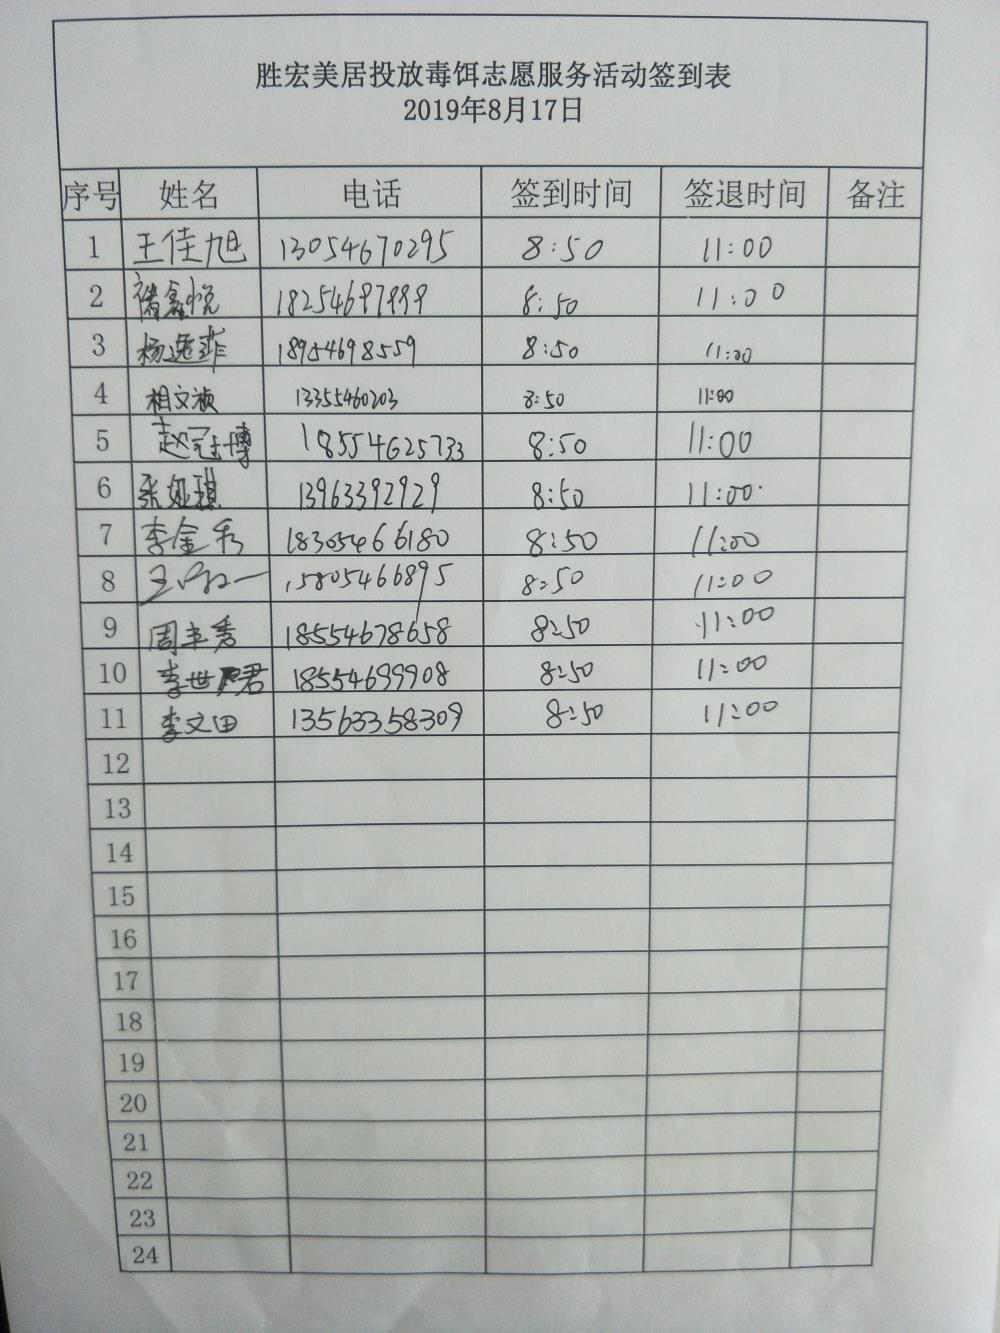 胜宏美居投放毒饵志愿服务活动签到表
2019年8月17日
序号 姓名 电话 签到时间 签退时间 备注
1 王佳旭 13054670295 8:50 11:00
2 褚鑫悦 18254697999 8:50 11:00
3 杨逸菲 18954698559 8:50 11:00
4 相文祯 13355460203 8:50 11:00
5 赵冠博 18554625733 8:50 11:00
6 张娅琪 13963392929 8:50 11:00
7 李金秀 18305466180 8:50 11:00
8 王 15805466895 8:50 11:00
9 周丰秀 18554678658 8:50 11:00
10 李世君 18554699908 8:50 11:00
11 李文田 13563358309 8:50 11:00
12
13
14
15
16
17
18
19
20
21
22
23
24